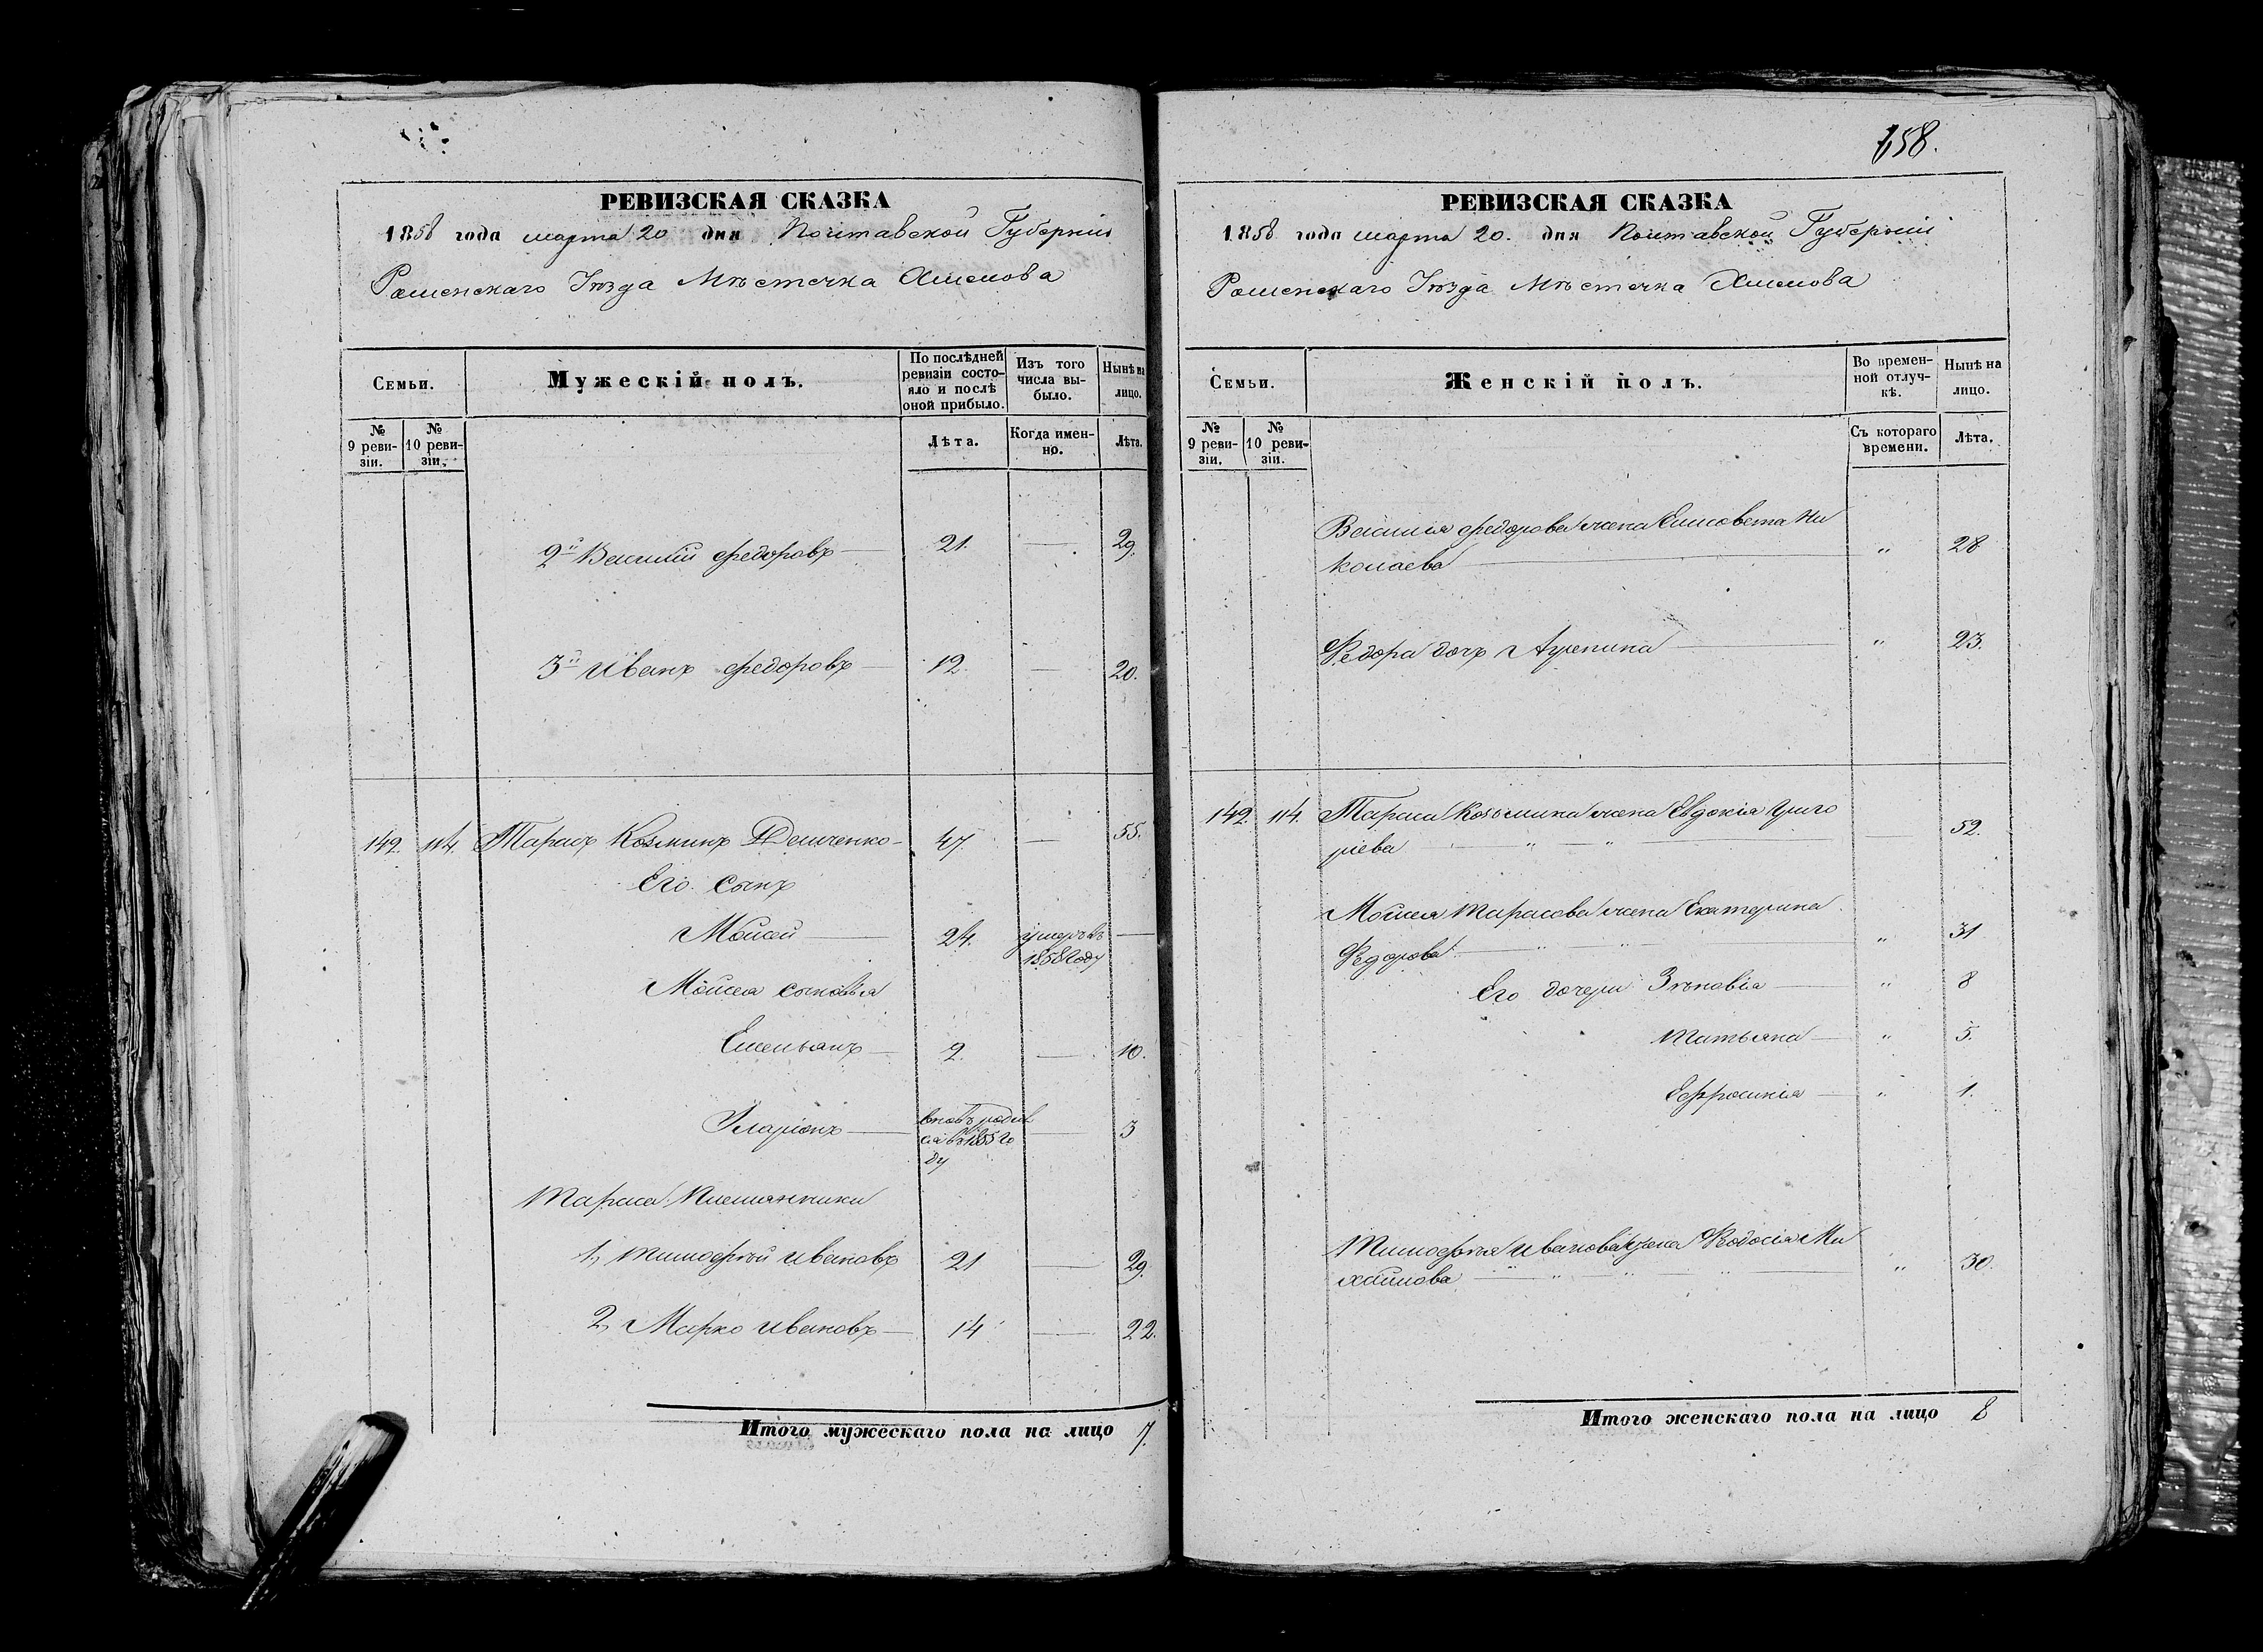 РЕВИЗСКАЯ СКАЗКА
1858 года марта 20 дня Полтавской Губерніи
Роменскаго Уѣзда Мѣстечка Хмелова
Семьи.
Мужескій полъ.
По послѣдней ревизіи состояло и послѣ оной прибыло.
Изъ того числа выбыло.
Нынѣ на лицо.
№ 9 ревизіи.
№ 10 ревизіи.
Лѣта.
Когда именно.
Лѣта.
2й Василій Федоровъ 21. — 29.
3й Иванъ Федоровъ 12. — 20.
142. 114. Тарасъ Козминъ Демченко 47 — 55.
Его сынъ
Мойсей 24. умеръ въ —
1858 году
Мойсея сыновья
Емельянъ 2. — 10.
Иларіонъ вновь родив — 3
ся въ 1855 го
ду
Тараса племянники
1, Тимофѣй Ивановъ 21 — 29.
2, Марко Ивановъ 14 — 22.
Итого мужескаго пола на лицо 7.
158.
РЕВИЗСКАЯ СКАЗКА
1858 года марта 20. дня Полтавской Губерніи
Роменскаго Уѣзда Мѣстечка Хмелова
Семьи.
Женскій полъ.
Во временной отлучкѣ.
Нынѣ на лицо.
№ 9 ревизіи.
№ 10 ревизіи.
Съ котораго времени.
Лѣта.
Василія Федорова жена Елисовета Ни
колаева „ 28
Федора дочь Агрепина „ 23.
142. 114. Тараса Козьмина жена Евдокія Григо
ріева „ „ — 52.
Мойсея Тарасова жена Екатерина
Федорова „ „ „ 31
Его дочери Зѣновія „ 8
Татьяна „ 5.
Ефросинія „ 1.
Тимофѣя Иванова жена Федосія Ми
хайлова „ „ „ „ 30.
Итого женскаго пола на лицо 8